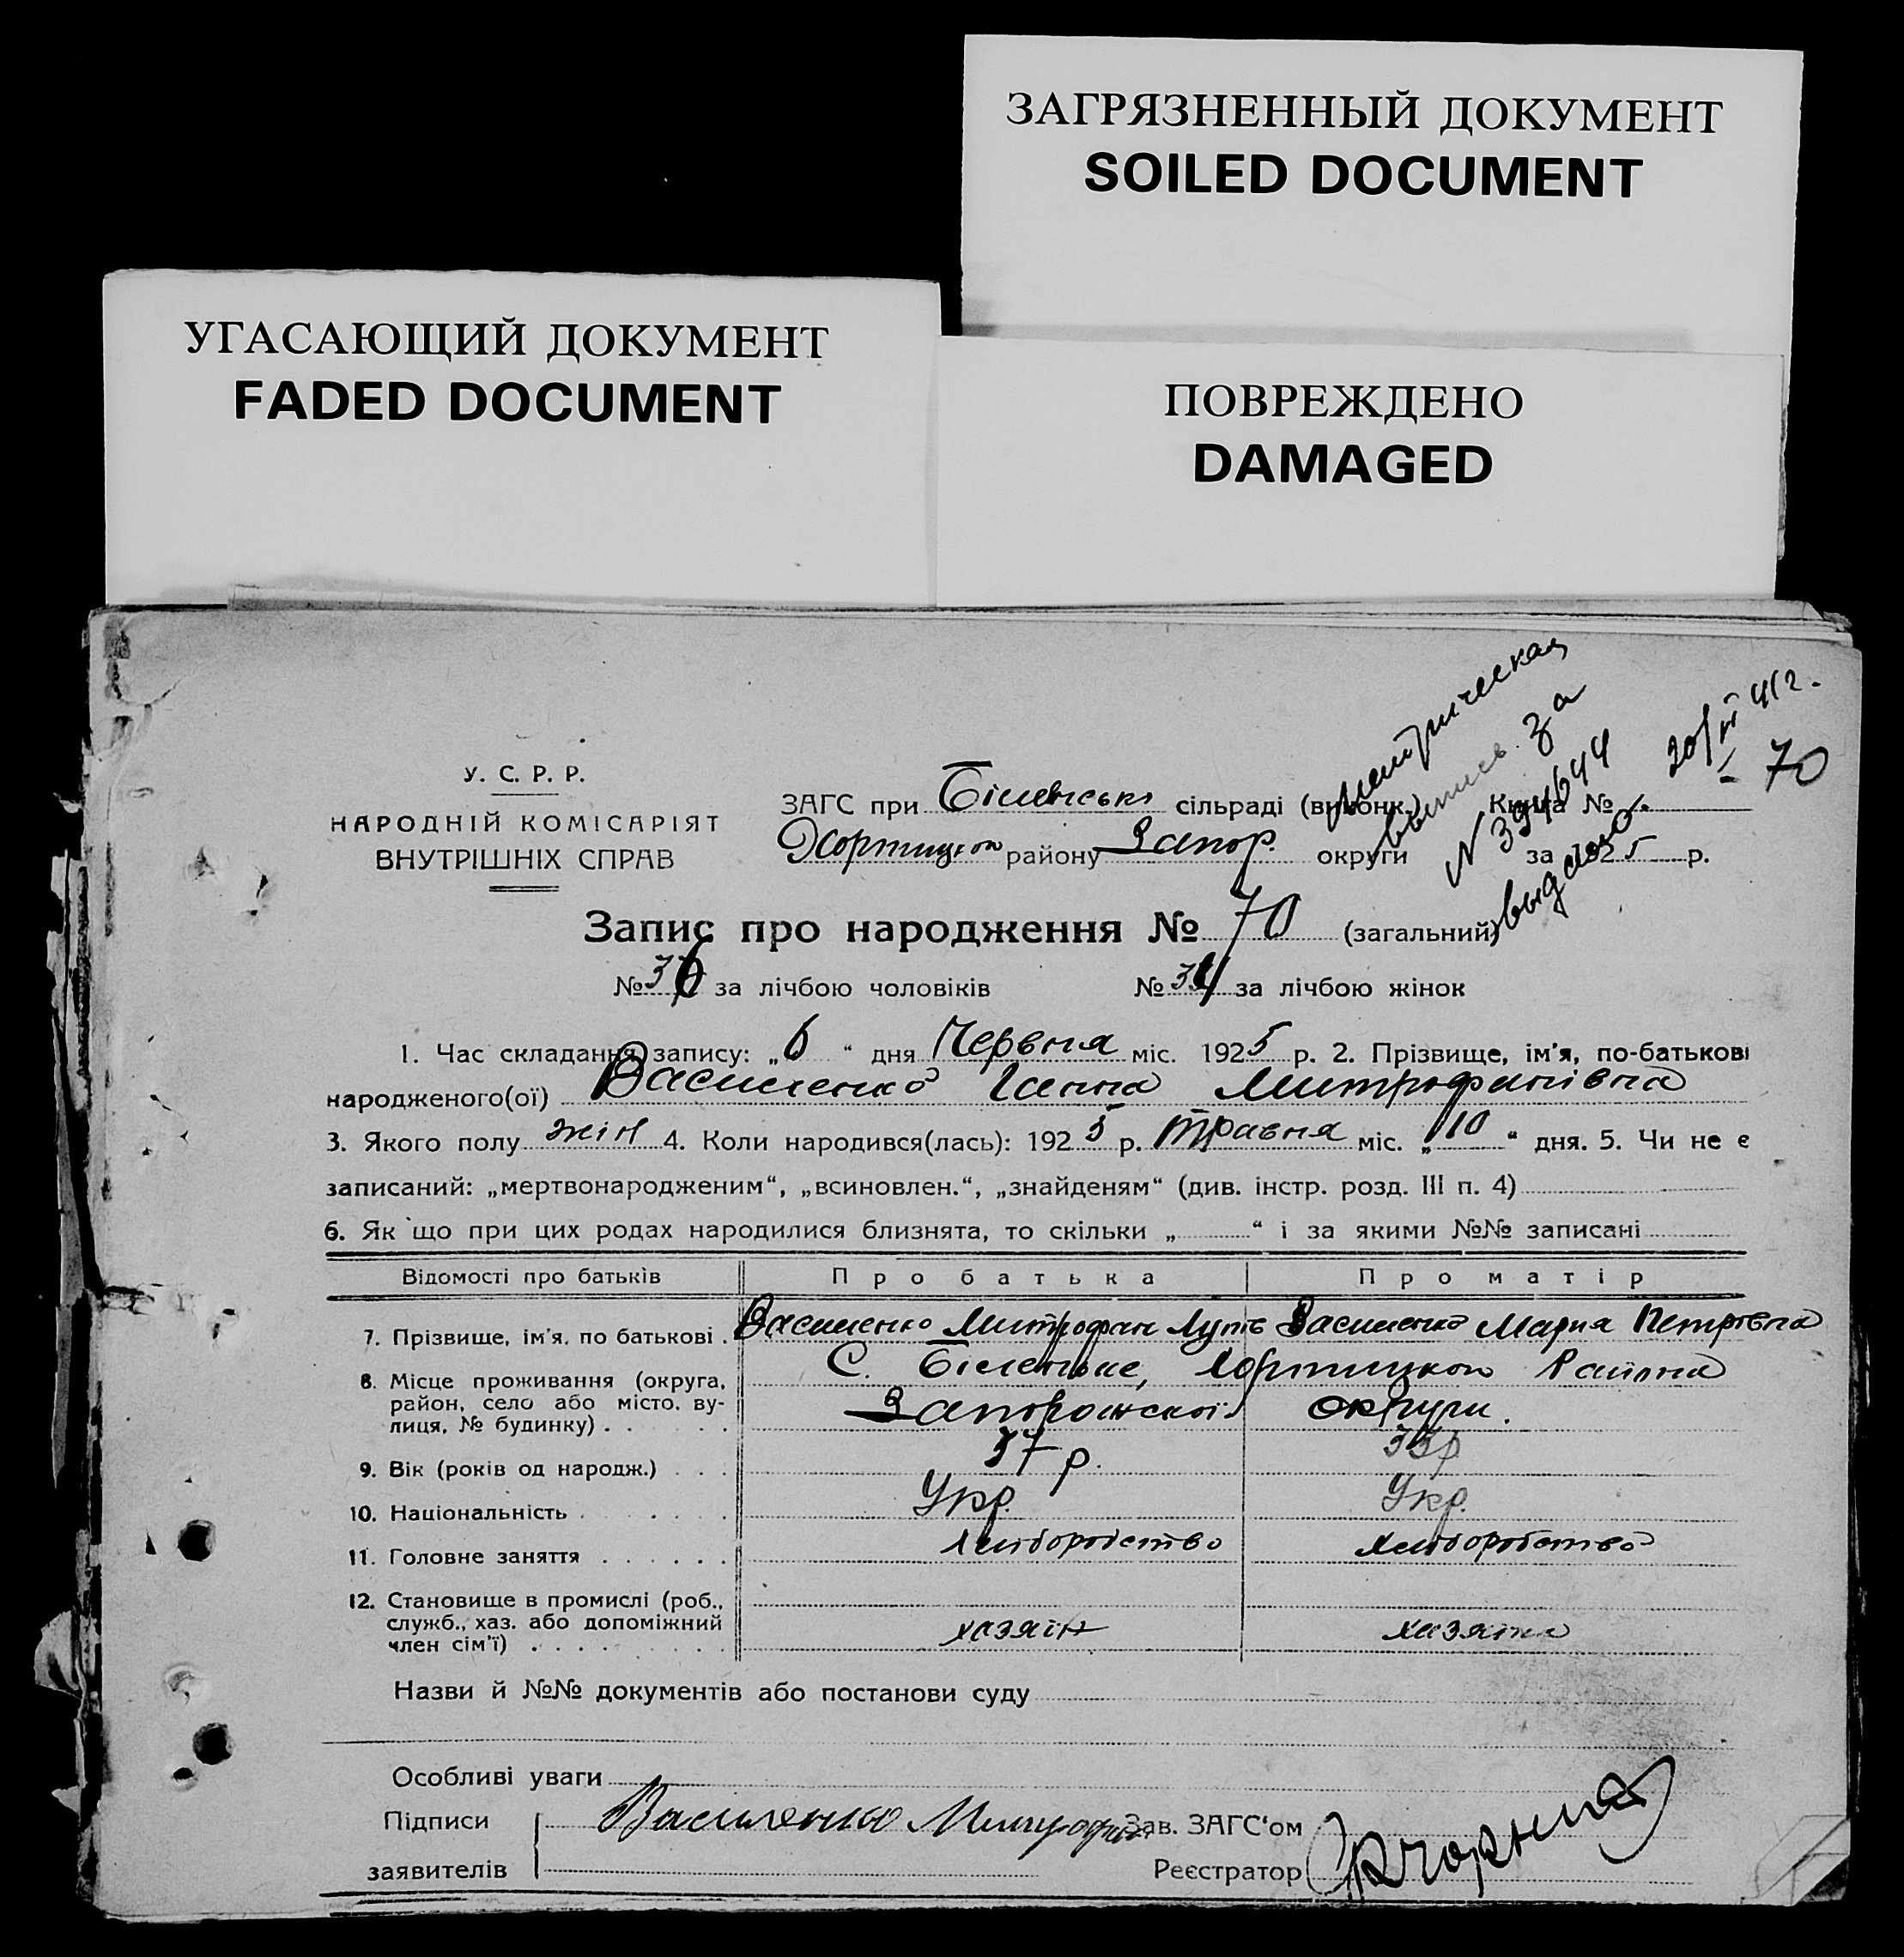 ЗАГРЯЗНЕННЫЙ ДОКУМЕНТ
SOILED DOCUMENT
УГАСАЮЩИЙ ДОКУМЕНТ
FADED DOCUMENT
ПОВРЕЖДЕНО
DAMAGED
метрическая
выпись за
N 394644
выдано.
20/III 41 г.
70
У. С. Р. Р.
НАРОДНІЙ КОМІСАРІЯТ
ВНУТРІШНІХ СПРАВ
ЗАГС при Біленські сільраді (виконк.) Книга №
Хортицкои району Запор. округи за 1925 р.
Запис про народження № 70 (загальний)
№ 36 за лічбою чоловіків № 34 за лічбою жінок
1. Час складання запису: „6“ дня Червня міс. 1925 р. 2. Прізвище, ім'я, по-батькові
народженого(ої) Василенко Ганна Митрофанівна
3. Якого полу жін 4. Коли народився(лась): 1925 р. Травня міс. „10“ дня. 5. Чи не є
записаний: „мертвонародженим“, „всиновлен.“, „знайденям“ (див. інстр. розд. III п. 4)
6. Як що при цих родах народилися близнята, то скільки „ “ і за якими №№ записані
Відомості про батьків Про батька Про матір
7. Прізвище, ім'я, по батькові . Василенко Митрофан Василенко Мария Петрівна
8. Місце проживання (округа, район, село або місто, ву-лиця, № будинку) . . . . С. Біленьке, Хортицкои Району
Запорожскої округи.
9. Вік (років од народж.) . . . 37 р. 33 р
10. Національність . . . . . Укр. Укр.
11. Головне заняття . . . . . . Хліборобство Хліборобство
12. Становище в промислі (роб., служб., хаз. або допоміжний член сім'ї) . . . . . . . . хазяїн хазяїка
Назви й №№ документів або постанови суду
Особливі уваги
Підписи Василенко Митрофан Зав. ЗАГС'ом
заявителів Реєстратор